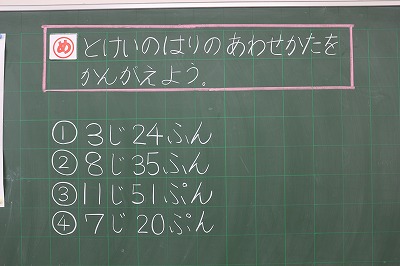 め とけいのはりのあわせかたを
かんがえよう。
① 3じ24ぷん
② 8じ35ふん
③ 11じ51ぷん
④ 7じ20ぷん